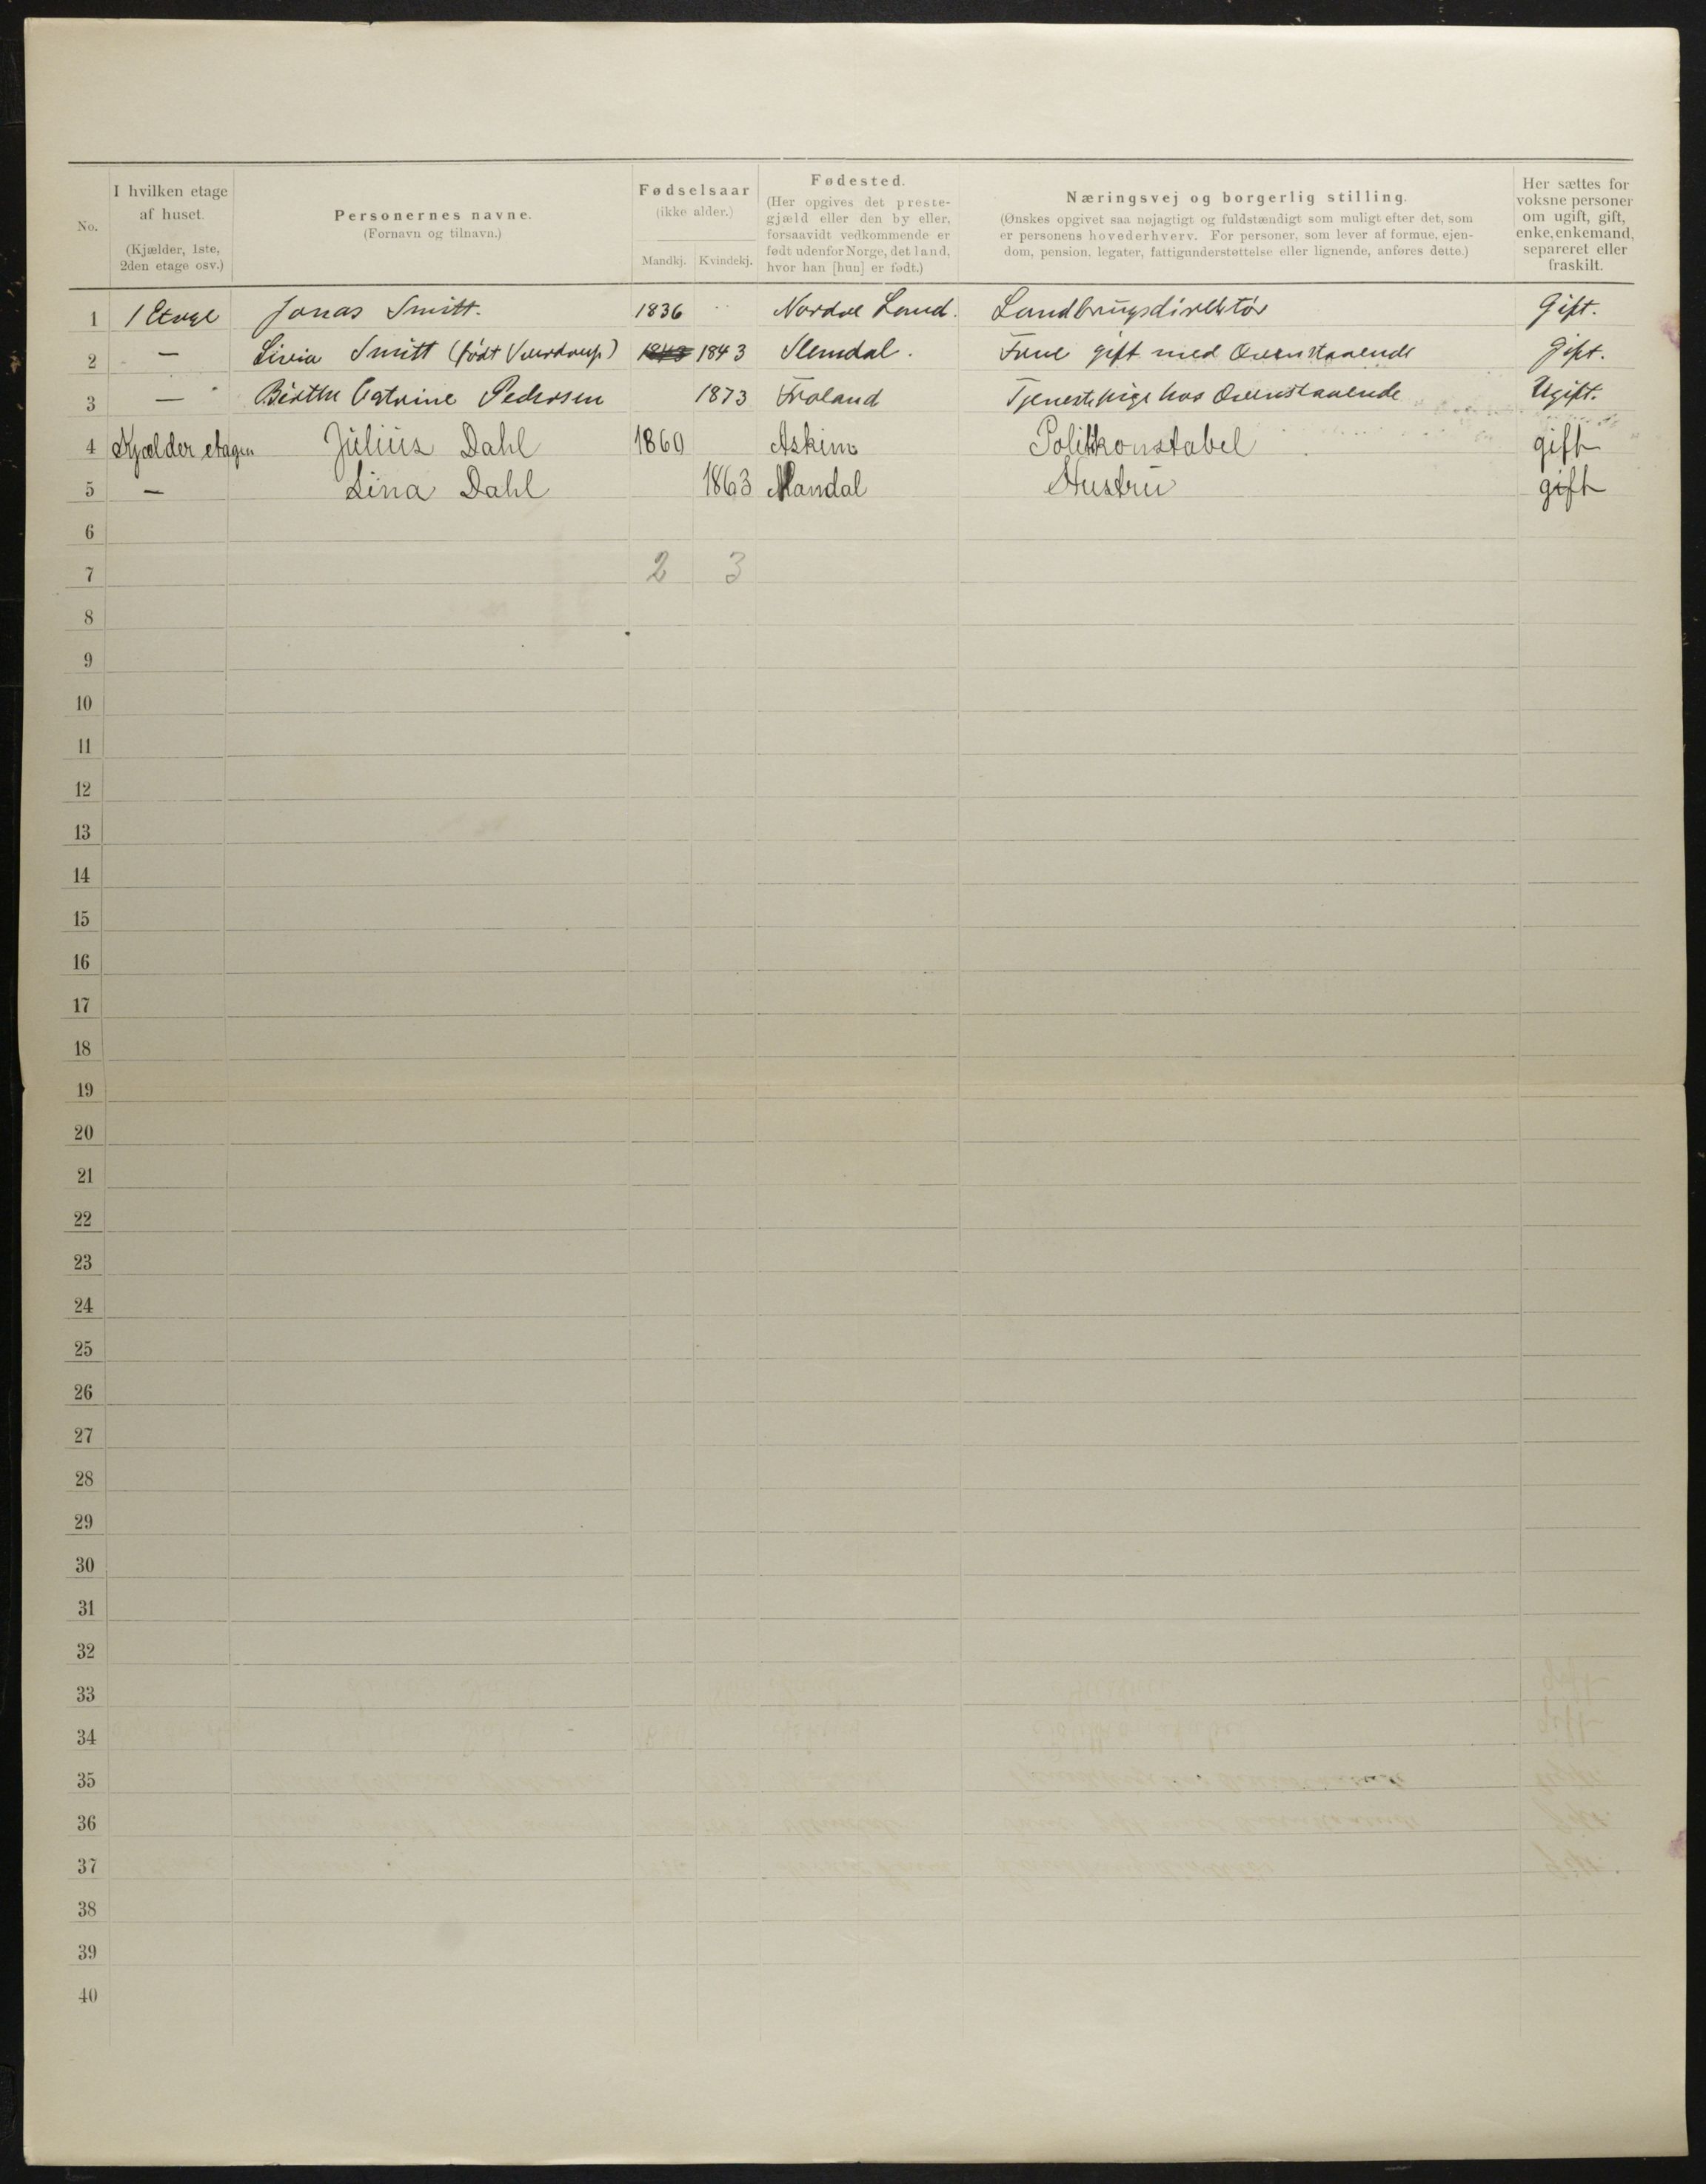 No.
I hvilken etage
af huset.
(Kjælder, 1ste,
2den etage osv.)
Personernes navne.
(Fornavn og tilnavn.)
Fødselsaar
(ikke alder.)
Mandkj. Kvindekj.
Fødested.
(Her opgives det preste-
gjæld eller den by eller,
forsaavidt vedkommende er
født udenfor Norge, det land,
hvor han [hun] er født.)
Næringsvej og borgerlig stilling.
(Ønskes opgivet saa nøjagtigt og fuldstændigt som muligt efter det, som
er personens hovederhverv. For personer, som lever af formue, ejen-
dom, pension, legater, fattigunderstøttelse eller lignende, anføres dette.)
Her sættes for
voksne personer
om ugift, gift,
enke, enkemand,
separeret eller
fraskilt.
1 1 Etage Jonas Smitt. 1836 Nordre Land. Landbrugsdirektør Gift.
2 — Livia Smitt (født) 1843 1843 Slemdal. Frue gift med Ovenstaaende Gift.
3 — Birthe Catrine Pedersen 1873 Froland Tjenestepige hos Ovenstaaende Ugift.
4 Kjælder etagen Julius Dahl 1860 Askim Politikonstabel gift
5 — Lina Dahl 1863 Mandal Hustru gift
6
7 2 3
8
9
10
11
12
13
14
15
16
17
18
19
20
21
22
23
24
25
26
27
28
29
30
31
32
33
34
35
36
37
38
39
40